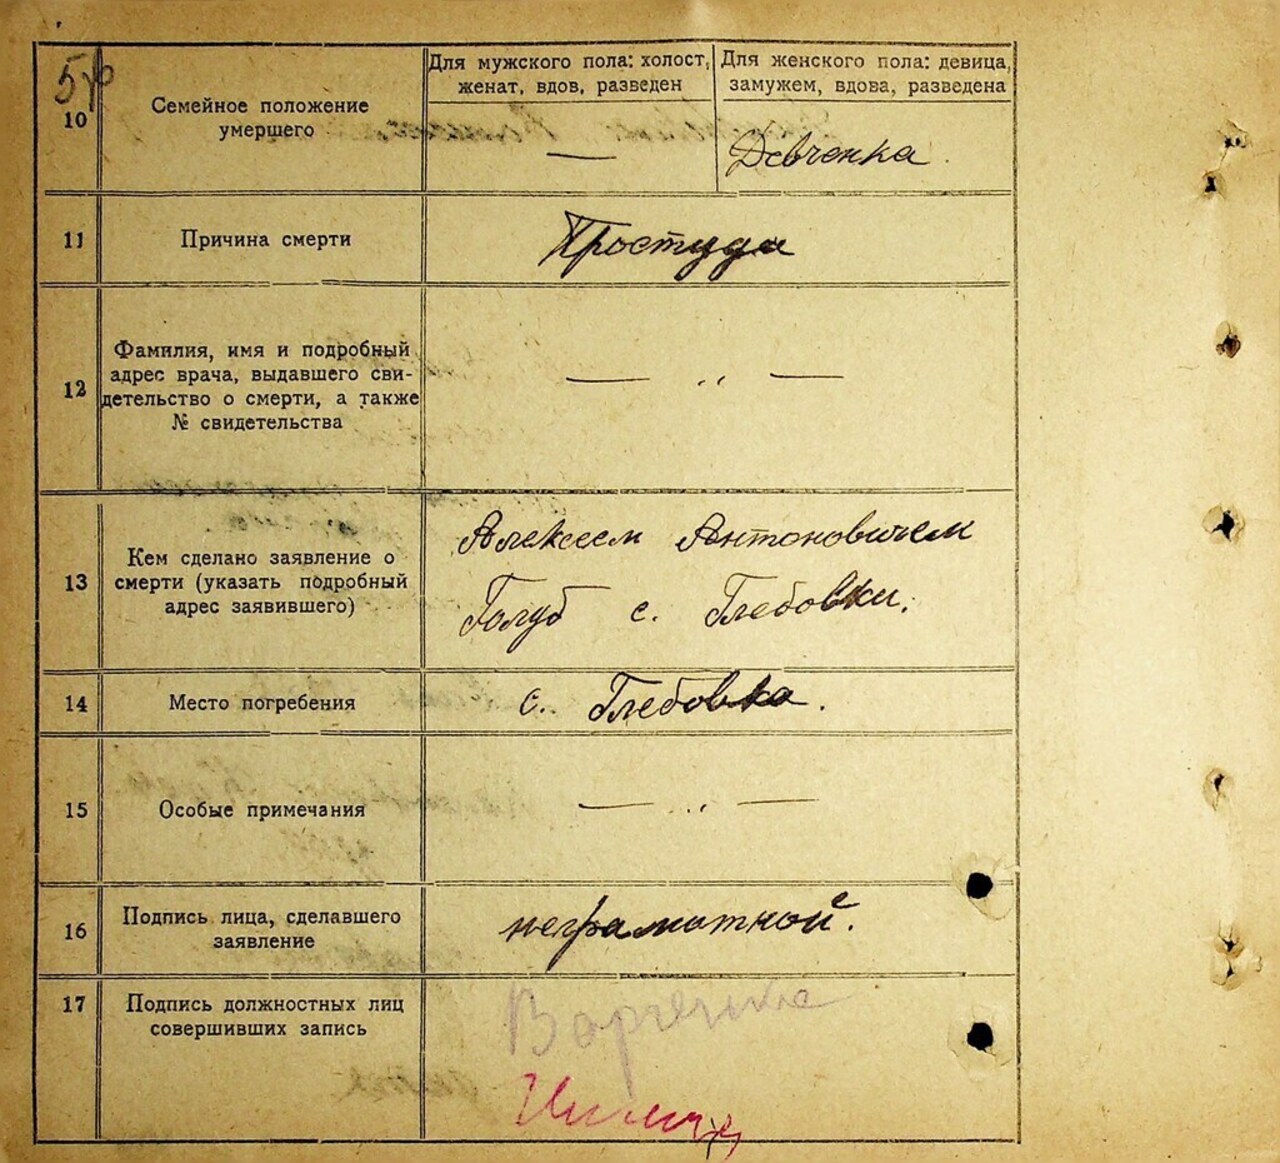 Для мужского пола: холост, женат, вдов, разведен
Для женского пола: девица, замужем, вдова, разведена
10
Семейное положение
умершего
—
Девченка
11
Причина смерти
Простуда
12
Фамилия, имя и подробный
адрес врача, выдавшего сви-
детельство о смерти, а также
№ свидетельства
— " —
13
Кем сделано заявление о
смерти (указать подробный
адрес заявившего)
Алексеем Антоновичем
Голуб с. Глебовки.
14
Место погребения
с. Глебовка.
15
Особые примечания
— " —
16
Подпись лица, сделавшего
заявление
неграмотной.
17
Подпись должностных лиц
совершивших запись